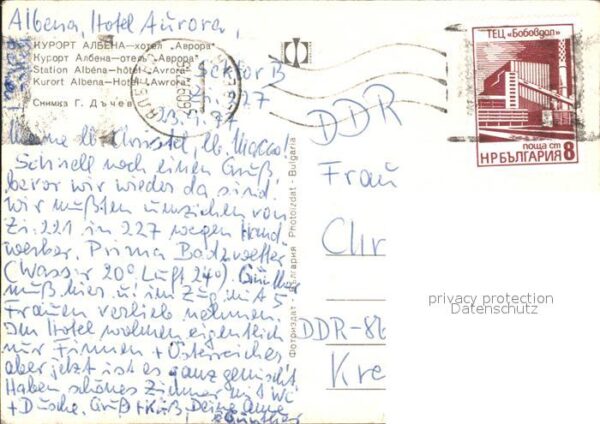 Albena, Hotel Aurora,
КУРОРТ АЛБЕНА—хотел „Аврора"
Курорт Албена—отель „Аврора"
Station Albéna—hôtel „Avrora"
Kurort Albena—Hotel „Avrora"
Снимка Г. Дъчев
Sektor B
227
23.
Meine lb. Christel, lb.
Schnell noch einen Gruß,
bevor wir wieder da sind.
Wir mußten umziehen von
Zi. 221 in 227 wegen Hand-
werker. Prima Badewetter
(Wasser 20° Luft 24°). Günther
muß hier u. im Zug mit 5
Frauen vorlieb nehmen.
Im Hotel wohnen eigentlich
nur Finnen + Österreicher
aber jetzt ist es ganz gemischt
Haben schönes Zimmer mit
+ Dusche. Gruß + Kuß, Deine
+ Günther
Фотоиздат - България Photoizdat - Bulgaria
ТЕЦ „Бобовдол"
поща ст
НР БЪЛГАРИЯ 8
DDR
Frau
Chr
DDR-86
Kre
privacy protection
Datenschutz